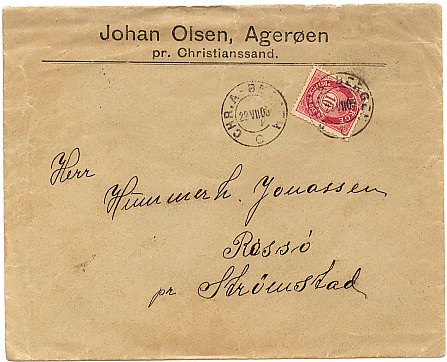 Johan Olsen, Agerøen
pr. Christianssand.
22 VII 09
C
10
Herr
Hummerh. Jonassen
Rossö
pr Strömstad